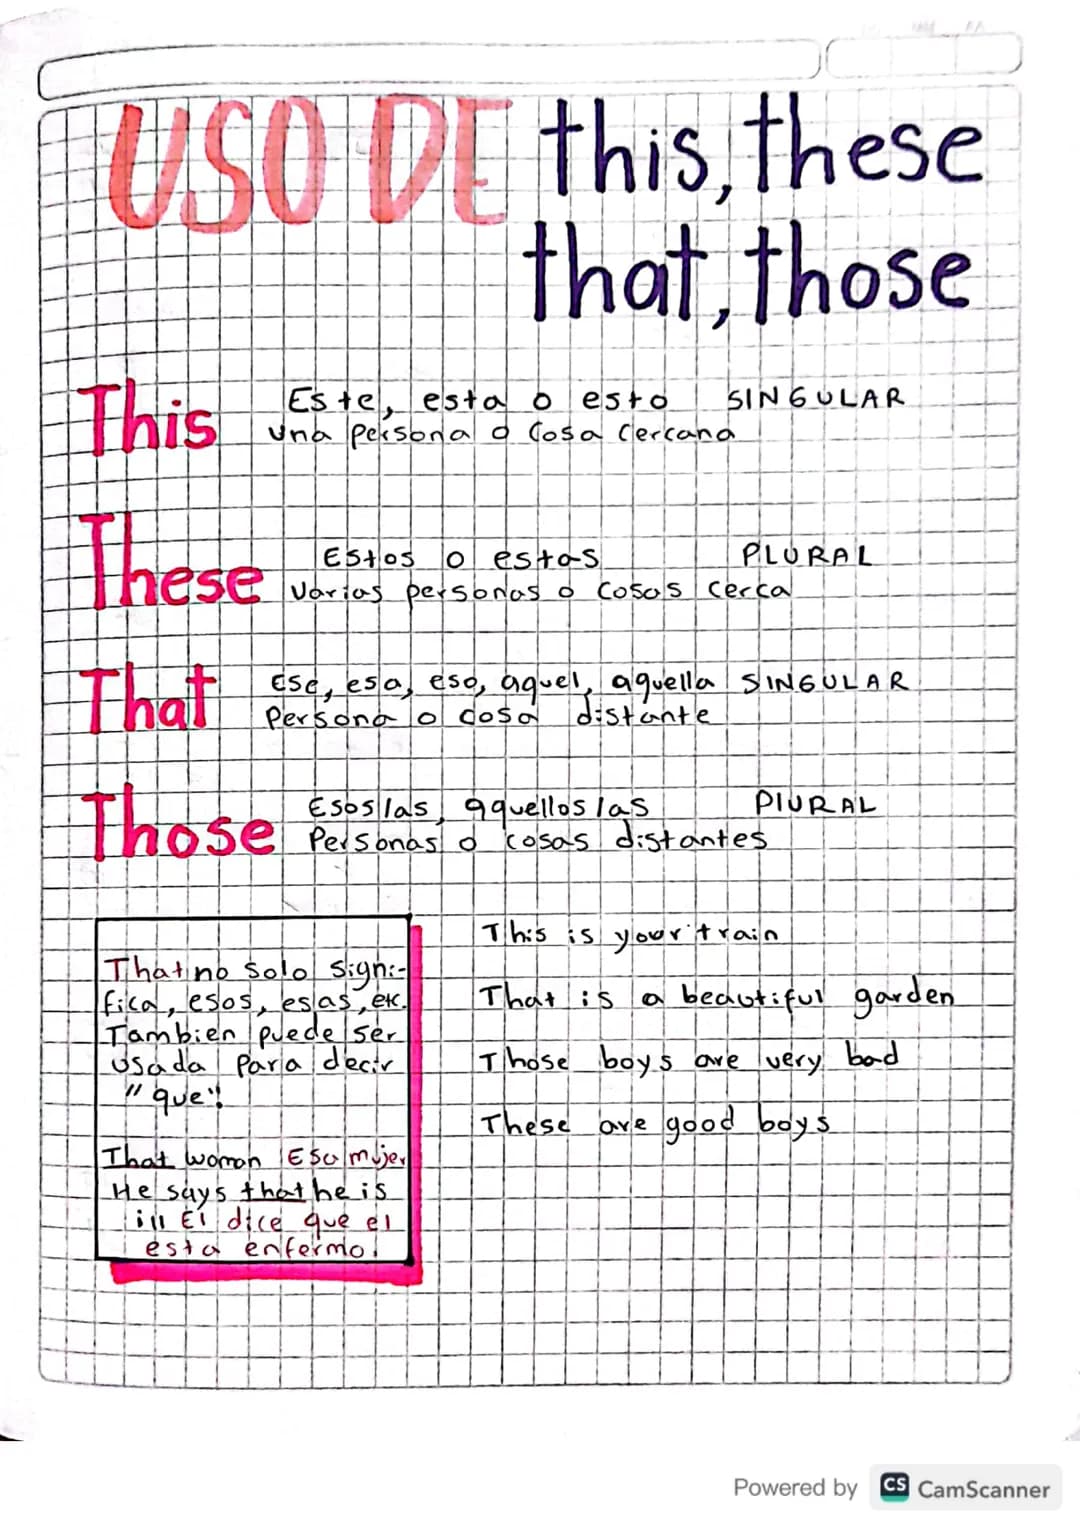 USO DE this, these
that, those
This Este, esta o esto SINGULAR
una persona o cosa cercana
These Estos o estas PLURAL
varias personas o cosas cerca
That Ese, esa, eso, aquel, aquella SINGULAR
Persona o cosa distante
Those Esos/as, aquellos/as PlURAL
Personas o cosas distantes
That no solo signi-
fica, esos, esas, etc.
Tambien puede ser
usada para decir
"que".
That woman Esa mujer
He says that he is
ill El dice que el
esta enfermo.
This is your train
That is a beautiful garden
Those boys are very bad
These are good boys
Powered by CS CamScanner